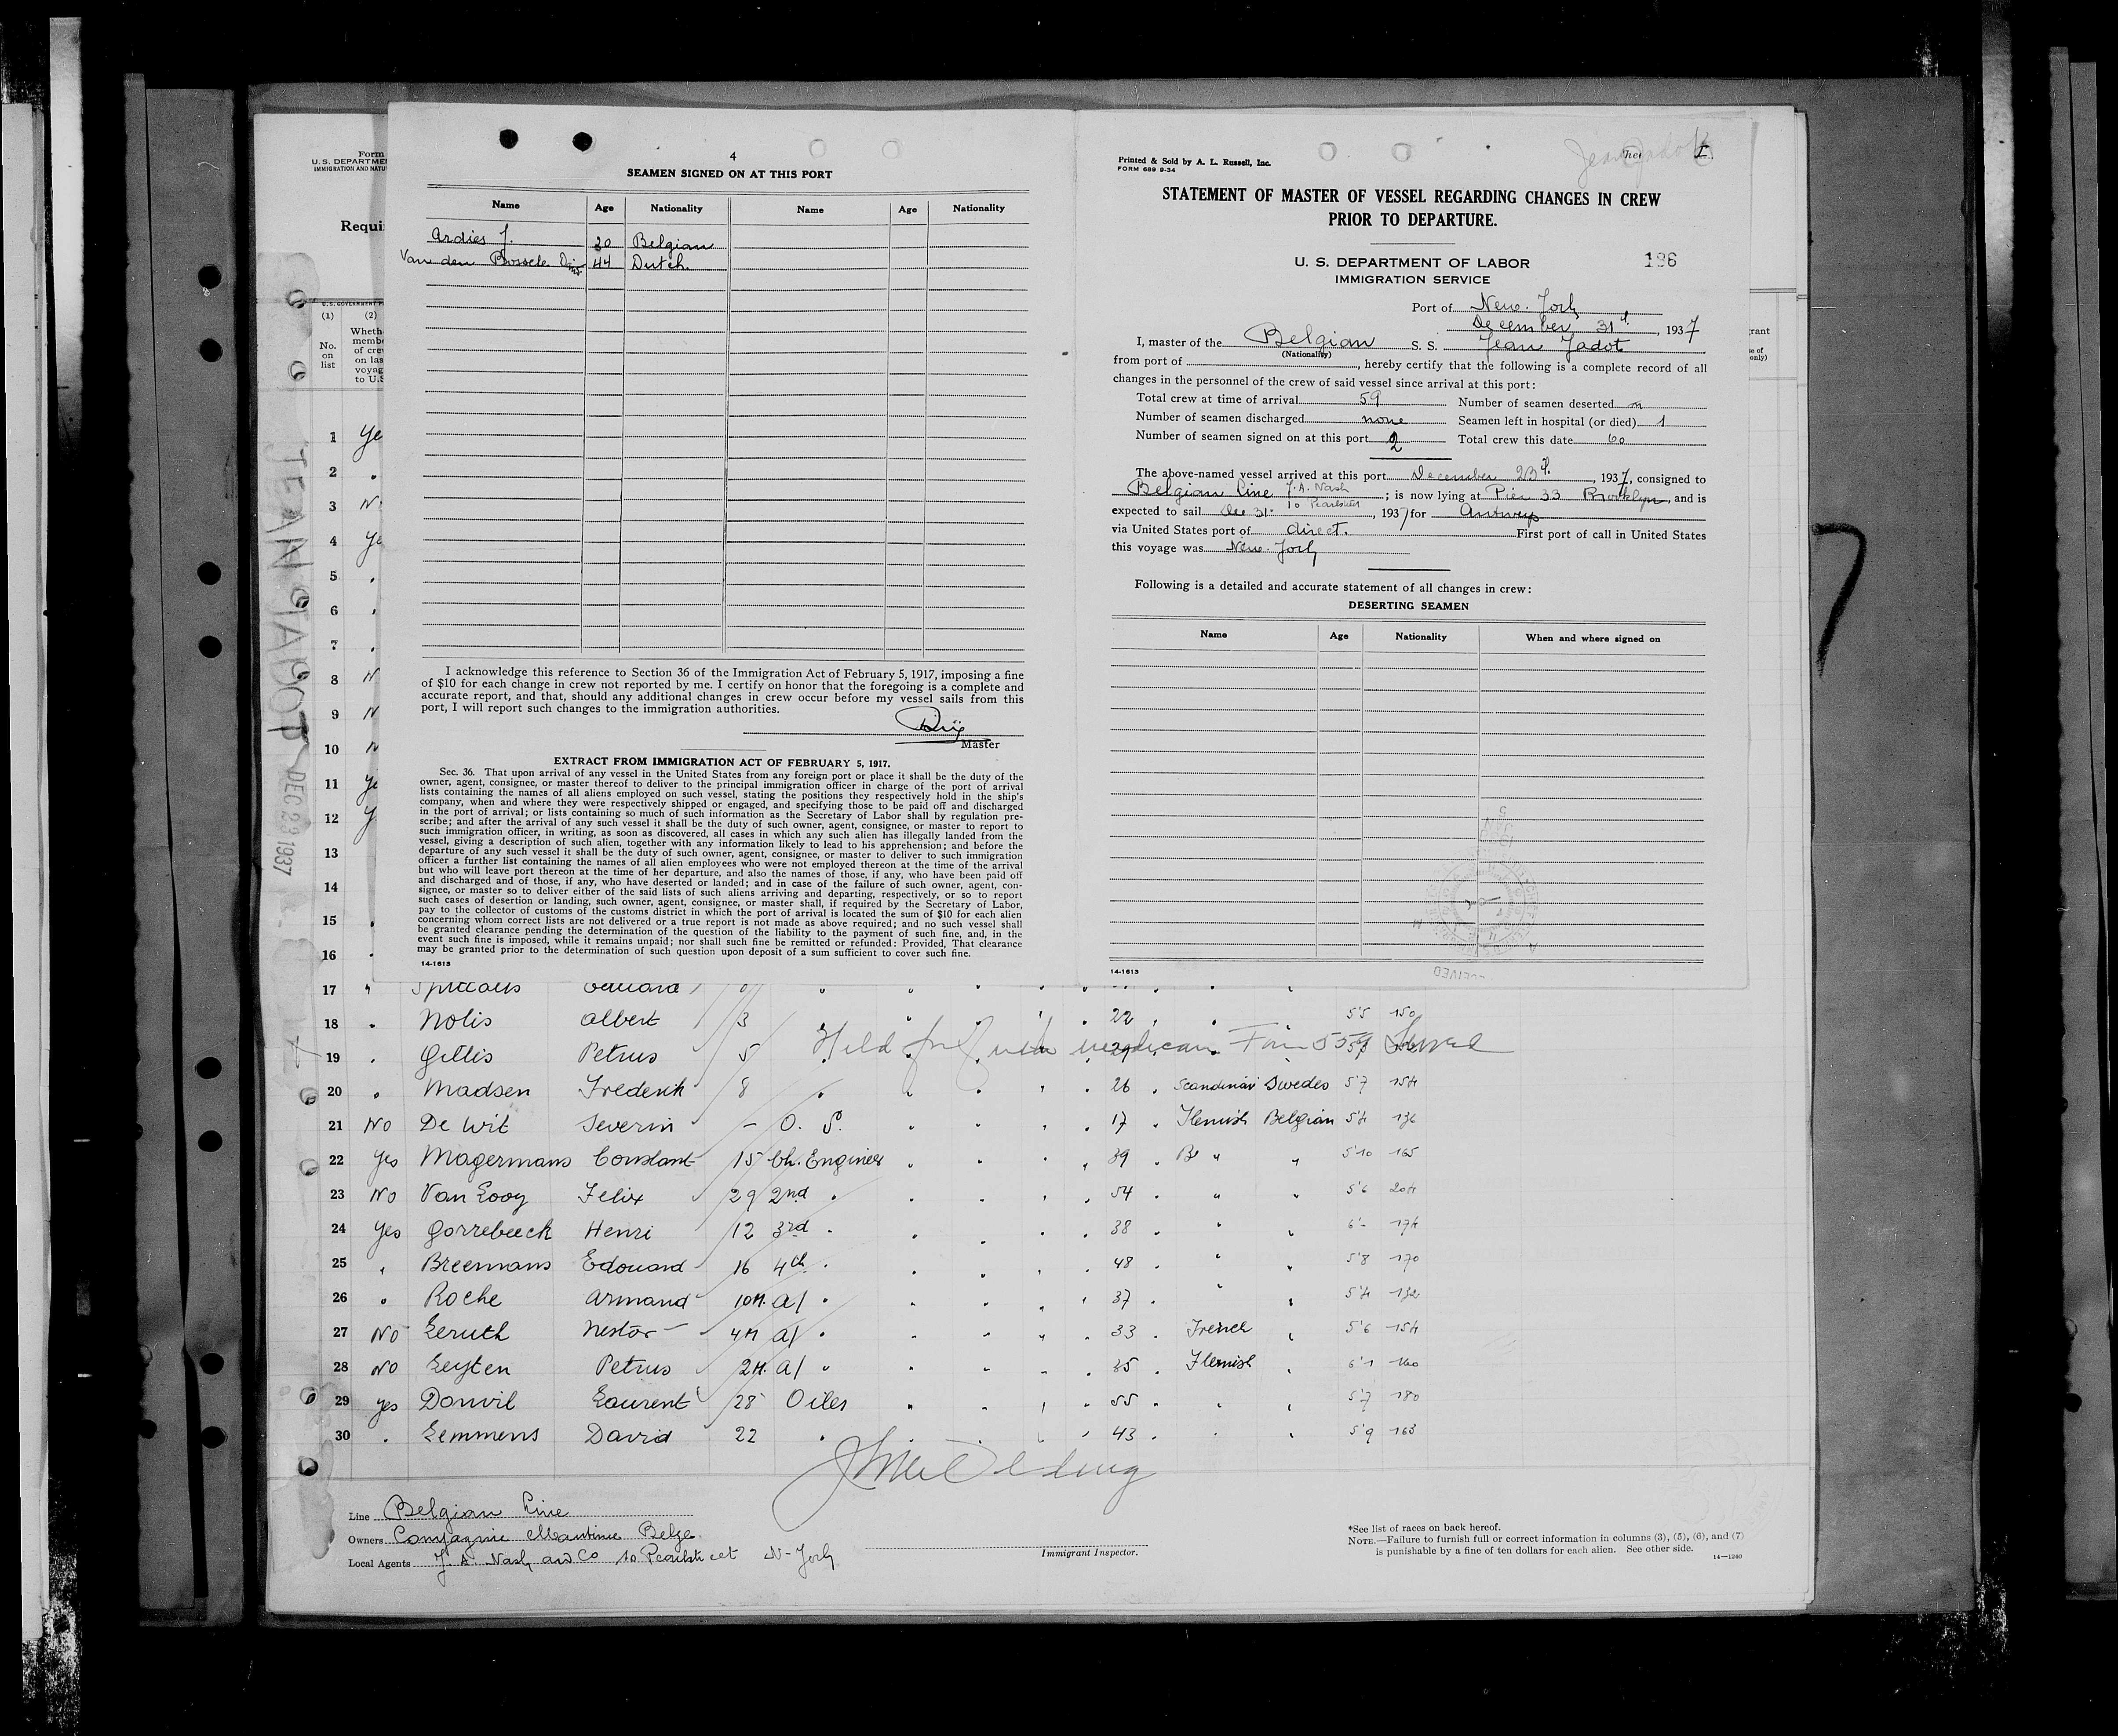 Form
U. S. DEPARTME
IMMIGRATION AND NATU
Requi
U. S. GOVERNMENT P
(1) (2)
No. on list
Wheth
membe
of crew
on las
voyag
to U.S
JEAN JADOT DEC 23 1937
4
SEAMEN SIGNED ON AT THIS PORT
Name Age Nationality Name Age Nationality
Ardies J. 30 Belgian
Van den Bossche 44 Dutch.
I acknowledge this reference to Section 36 of the Immigration Act of February 5, 1917, imposing a fine
of $10 for each change in crew not reported by me. I certify on honor that the foregoing is a complete and
accurate report, and that, should any additional changes in crew occur before my vessel sails from this
port, I will report such changes to the immigration authorities.
Master
EXTRACT FROM IMMIGRATION ACT OF FEBRUARY 5, 1917.
Sec. 36. That upon arrival of any vessel in the United States from any foreign port or place it shall be the duty of the
owner, agent, consignee, or master thereof to deliver to the principal immigration officer in charge of the port of arrival
lists containing the names of all aliens employed on such vessel, stating the positions they respectively hold in the ship's
company, when and where they were respectively shipped or engaged, and specifying those to be paid off and discharged
in the port of arrival; or lists containing so much of such information as the Secretary of Labor shall by regulation pre-
scribe; and after the arrival of any such vessel it shall be the duty of such owner, agent, consignee, or master to report to
such immigration officer, in writing, as soon as discovered, all cases in which any such alien has illegally landed from the
vessel, giving a description of such alien, together with any information likely to lead to his apprehension; and before the
departure of any such vessel it shall be the duty of such owner, agent, consignee, or master to deliver to such immigration
officer a further list containing the names of all alien employees who were not employed thereon at the time of the arrival
but who will leave port thereon at the time of her departure, and also the names of those, if any, who have been paid off
and discharged and of those, if any, who have deserted or landed; and in case of the failure of such owner, agent, con-
signee, or master so to deliver either of the said lists of such aliens arriving and departing, respectively, or so to report
such cases of desertion or landing, such owner, agent, consignee, or master shall, if required by the Secretary of Labor,
pay to the collector of customs of the customs district in which the port of arrival is located the sum of $10 for each alien
concerning whom correct lists are not delivered or a true report is not made as above required; and no such vessel shall
be granted clearance pending the determination of the question of the liability to the payment of such fine, and, in the
event such fine is imposed, while it remains unpaid; nor shall such fine be remitted or refunded: Provided, That clearance
may be granted prior to the determination of such question upon deposit of a sum sufficient to cover such fine.
14-1613
Jean Jadot
Printed & Sold by A. L. Russell, Inc.
FORM 689 9-34
STATEMENT OF MASTER OF VESSEL REGARDING CHANGES IN CREW
PRIOR TO DEPARTURE.
U. S. DEPARTMENT OF LABOR 196
IMMIGRATION SERVICE
Port of New-York
December 31st, 1937
I, master of the Belgian S. S. Jean Jadot
(Nationality)
from port of , hereby certify that the following is a complete record of all
changes in the personnel of the crew of said vessel since arrival at this port:
Total crew at time of arrival 59 Number of seamen deserted
Number of seamen discharged none Seamen left in hospital (or died) 1
Number of seamen signed on at this port 2 Total crew this date 60
The above-named vessel arrived at this port December 23d, 1937, consigned to
Belgian Line J.A. Nash 10 Pearlstreet; is now lying at Pier 33 Brooklyn, and is
expected to sail Dec 31st, 1937 for Antwerp
via United States port of direct. First port of call in United States
this voyage was New-York
Following is a detailed and accurate statement of all changes in crew:
DESERTING SEAMEN
Name Age Nationality When and where signed on
14-1613
1 Ye
2 "
3 N
4 Ye
5 "
6 "
7 "
8 N
9 N
10 N
11 Ye
12 Y
13
14
15 "
16 "
17 "
18 " Nolis Albert 3 " 22 5'5 150
19 " Gillis Petrus 5
Held for
20 " Madsen Frederik 8 " 26 Scandinav Swedes 5'7 154
21 No De Wit Severin - O. S. 17 Flemish Belgian 5'4 136
22 Yes Magermans Constant 15 Ch. Engineer 39 " " 5'10 165
23 No Van Looy Felix 29 2nd " 54 " " 5'6 204
24 Yes Gorrebeeck Henri 12 3rd " 38 " " 6'- 174
25 " Breemans Edouard 16 4th " 48 " " 5'8 170
26 " Roche Armand 10M. A/ " 37 " " 5'4 132
27 No Leruth Nestor 4M A/ " 33 French " 5'6 154
28 No Leyten Petrus 2M. A/ " 35 Flemish " 6'1 160
29 Yes Donvil Laurent 28 Oiler 55 " " 5'7 180
30 " Lemmens David 22 " 43 " " 5'9 163
Line Belgian Line
Owners Compagnie Maritime Belge
Local Agents J. A. Nash and Co 10 Pearlstreet N-York
Immigrant Inspector.
*See list of races on back hereof.
NOTE.—Failure to furnish full or correct information in columns (3), (5), (6), and (7)
is punishable by a fine of ten dollars for each alien. See other side.
14—1240
7